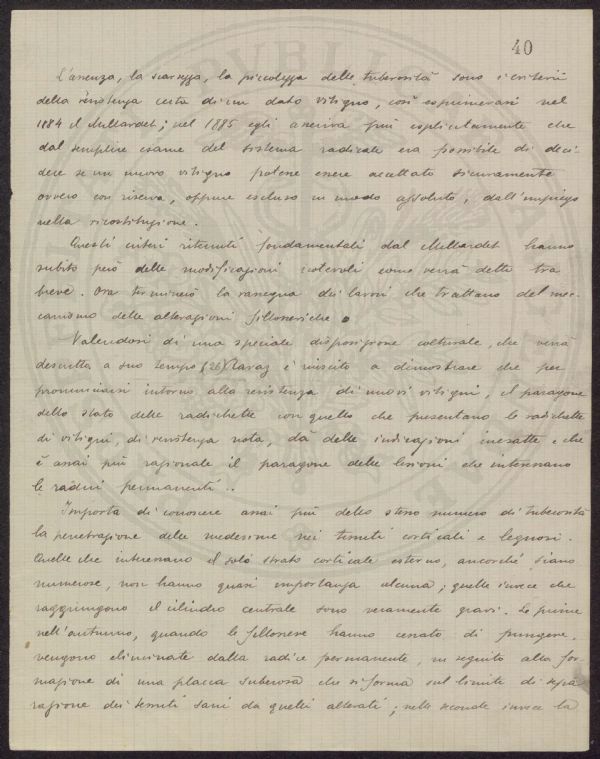 40
L'assenza, la scarsezza, la piccolezza delle tuberosità sono i criterii
della resistenza certa di un dato vitigno, così esprimevasi nel
1884 il Millardet; nel 1885 egli asseriva più esplicitamente che
dal semplice esame del sistema radicale era possibile di deci-
dere se un nuovo vitigno potesse essere accettato sicuramente
ovvero con riserva, oppure escluso in modo assoluto, dall'impiego
nella ricostituzione.
Questi criteri ritenuti fondamentali dal Millardet hanno
subito però delle modificazioni notevoli come verrà detto tra
breve. Ora terminerò la rassegna dei lavori che trattano del mec-
canismo delle alterazioni fillosseriche.
Valendosi di una speciale disposizione colturale, che verrà
descritta a suo tempo (26) Ravaz è riuscito a dimostrare che per
pronunciarsi intorno alla resistenza di nuovi vitigni, il paragone
dello stato delle radichette con quello che presentano le radichette
di vitigni, di resistenza nota, dà delle indicazioni inesatte e che
è assai più razionale il paragone delle lesioni che interessano
le radici permanenti..
Importa di conoscere assai più dello stesso numero di tuberosità
la penetrazione delle medesime nei tessuti corticali e legnosi.
Quelle che interessano il solo strato corticale esterno, ancorchè siano
numerose, non hanno quasi importanza alcuna; quelle invece che
raggiungono il cilindro centrale sono veramente gravi. Le prime
nell'autunno, quando le fillossere hanno cessato di pungere,
vengono eliminate dalla radice permanente, in seguito alla for-
mazione di una placca suberosa che si forma sul limite di sepa-
razione dei tessuti sani da quelli alterati; nelle seconde invece la